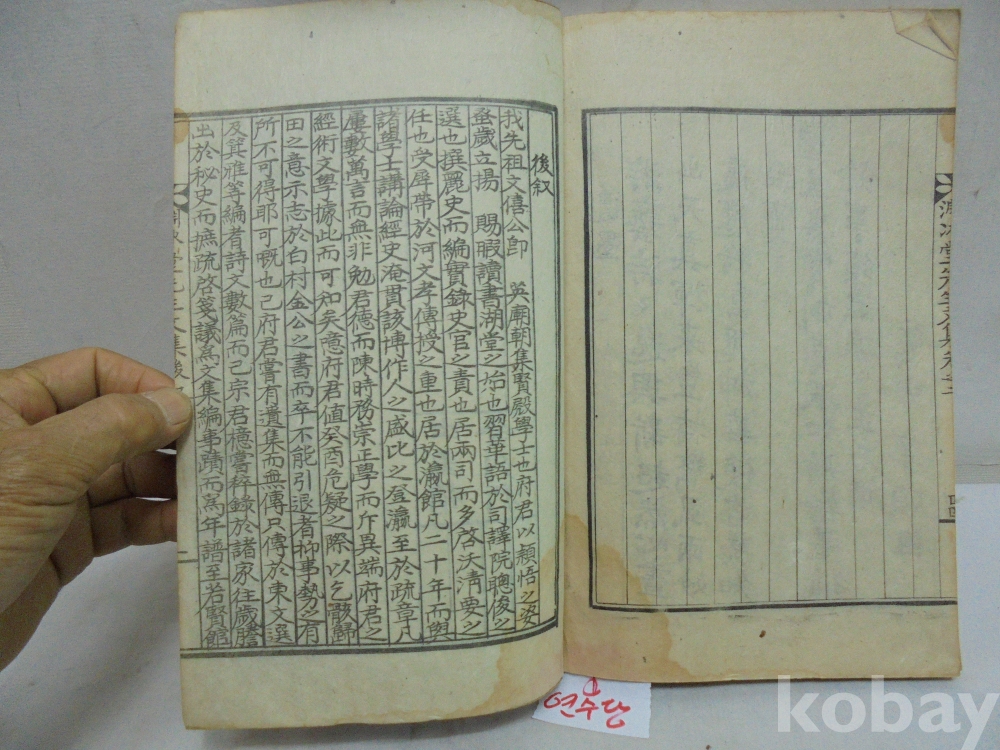 後叙
我先祖文僖公卽 英廟朝集賢殿學士也府君以穎悟之姿
蚤歲立揚 賜暇讀書湖堂之始也習華語於司譯院聰俊之
選也撰麗史而編實錄史官之責也居兩司而多啓沃淸要之
任也受犀帶於河文孝傳授之重也居於瀛館凡二十年而與
諸學士講論經史淹貫該博作人之盛比之登瀛至於疏章凡
屢數萬言而無非勉君德而陳時務崇正學而斥異端府君之
經術文學據此而可知矣噫府君値癸酉危疑之際以乞骸歸
田之意示志於白村金公之書而卒不能引退者抑事勢之有
所不可得耶可嘅也已府君嘗有遺集而無傳只傳於東文選
及箕雅等編者詩文數篇而已宗君檍嘗稡錄於諸家往歲謄
出於秘史而摭疏啓箋議爲文集編事蹟而爲年譜至若賢館
堂先生文集後
一
堂先生文集卷二
四四
연수당
kobay